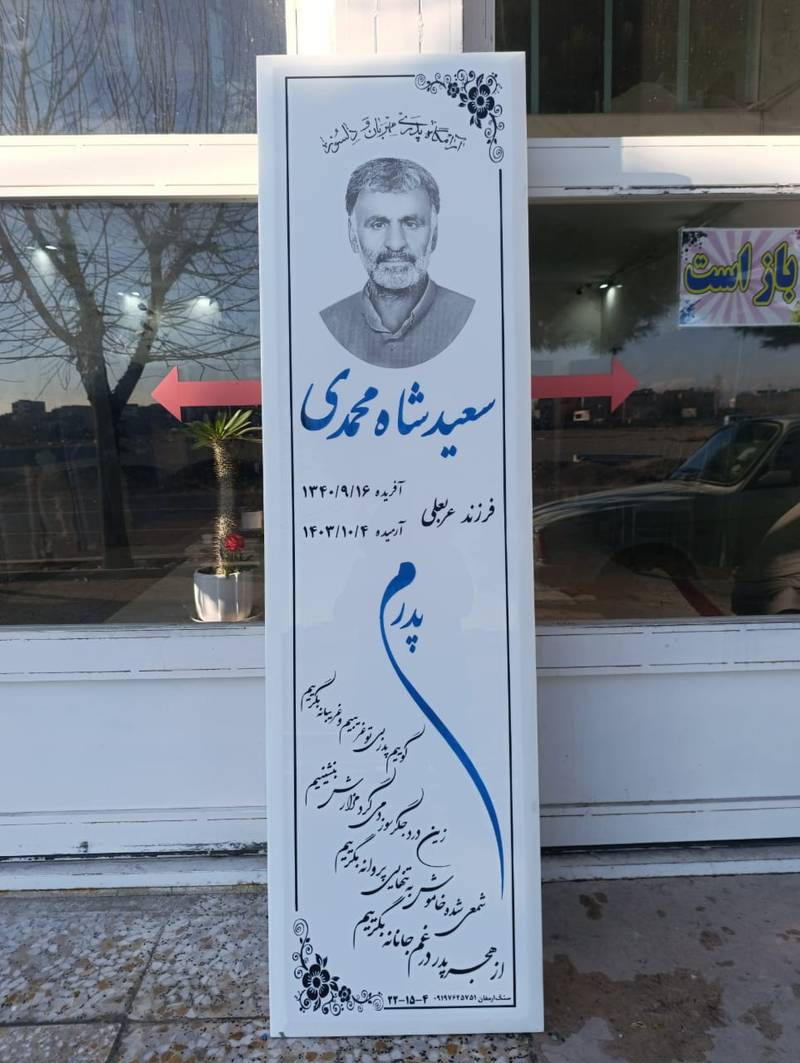 آرامگاه پدری مهربان و دلسوز
سعید شاه محمدی
فرزند عربعلی
آفریده ۱۳۴۰/۹/۱۶
آرمیده ۱۴۰۳/۱۰/۴
پدرم
گوییم پدر بی تو غریبیم و غریبانه بگرییم
زین درد جگرسوز دمی گرد مزارش بنشینیم
شمعی شده خاموش به تنهایی پروانه بگرییم
از هجر پدر در غم جانانه بگرییم
سنگ ارمغان ۰۹۱۹۷۶۲۵۷۵۱
۲۲-۱۵-۴
باز است